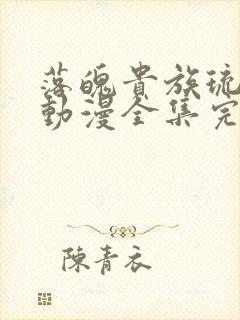 落魄貴族琉
動漫全集完
陳青衣